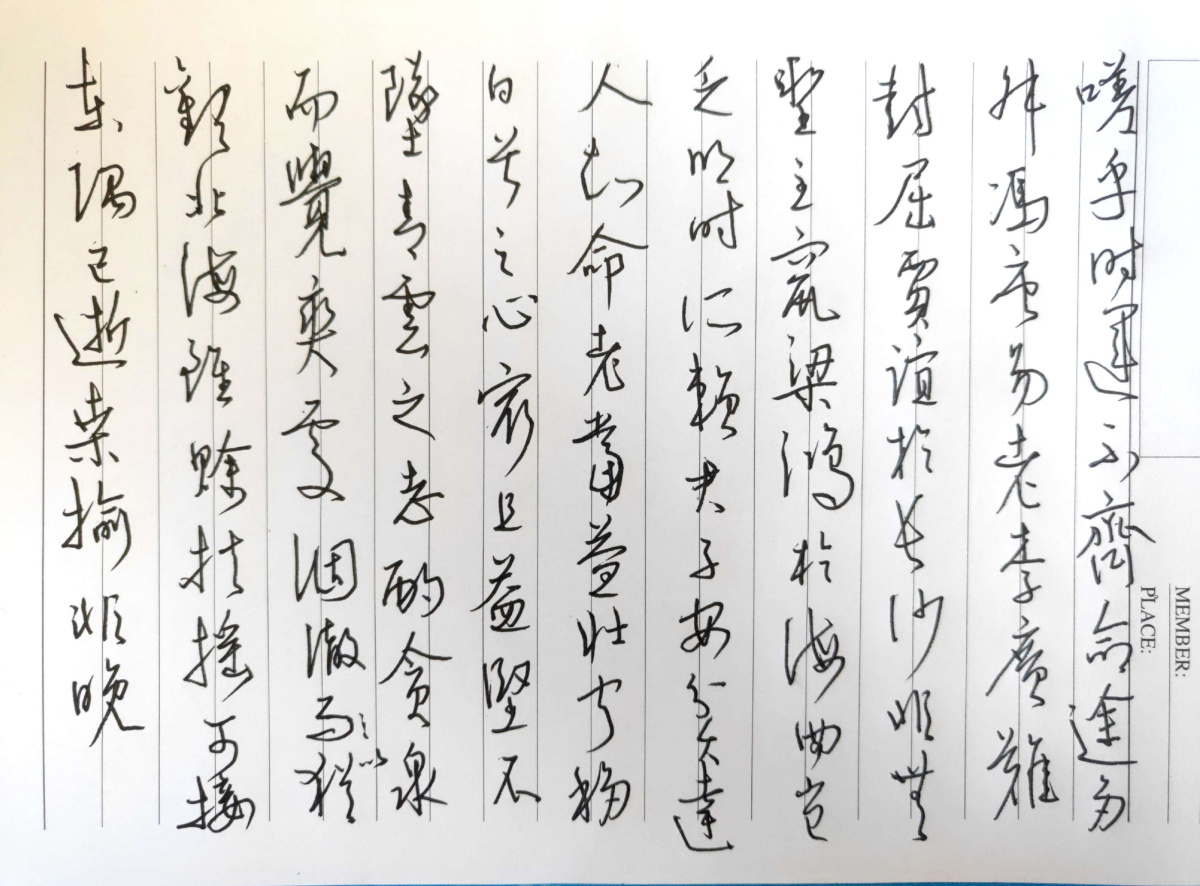 嗟乎时運不齊命途多
舛馮唐易老李廣難
封屈賈誼於长沙非無
聖主竄梁鴻於海曲岂
乏明时所賴君子安貧達
人知命老當益壮宁移
白首之心窮且益堅不
墜青雲之志酌貪泉
而覺爽處涸澈以猶
歡北海雖賒扶摇可接
东隅已逝桑榆非晚
MEMBER:
PLACE: